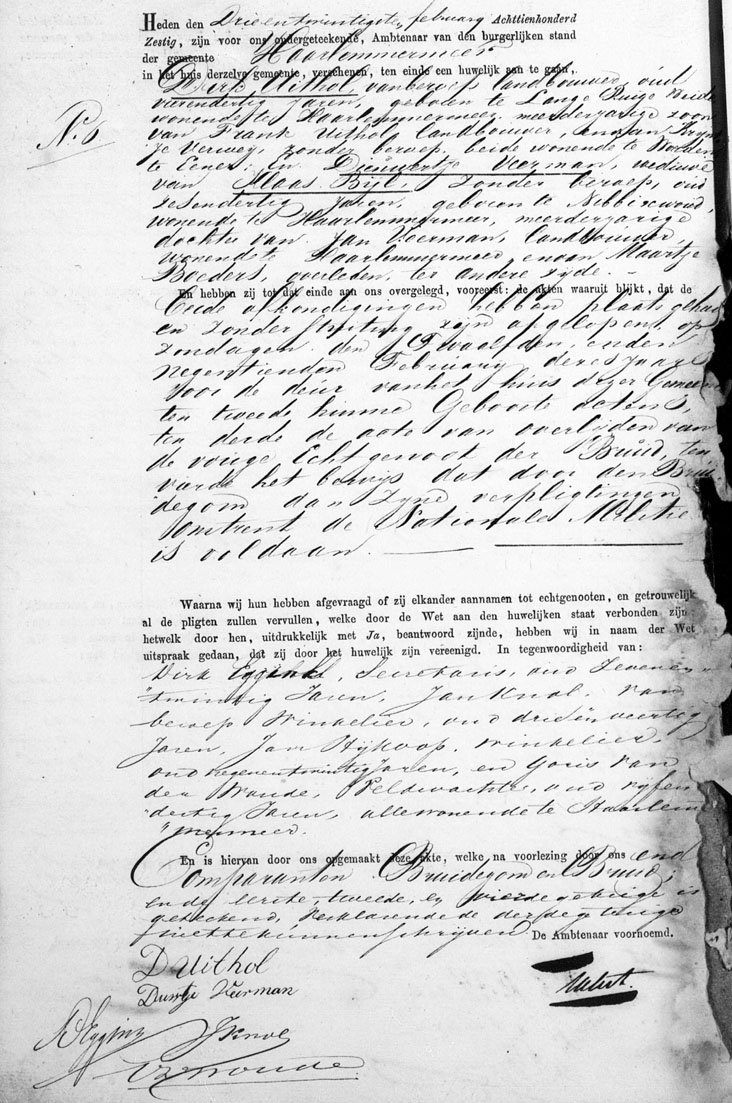 Heden den Drie en twintigste februarij Achttienhonderd
Zestig, zijn voor ons ondergeteekende, Ambtenaar van den burgerlijken stand
der gemeente Haarlemmermeer
in het huis derzelve gemeente, verschenen, ten einde een huwelijk aan te gaan,
Dirk Uithol van beroep landbouwer, oud
No. 6
vierendertig Jaren, geboren te Lange Ruige Weide
wonende te Haarlemmermeer, meerderjarige zoon
van Frank Uithol, landbouwer, en van
Verweij, zonder beroep, beide wonende te Woerden
te Eener; En Dieuwertje Veerman, weduwe
van Klaas Bijl, zonder beroep, oud
zesendertig Jaren, geboren te Nibbixwoud,
wonende te Haarlemmermeer, meerderjarige
dochter van Jan Veerman, landbouwer,
wonende te Haarlemmermeer, en van Maartje
Boeders, overleden, ter andere zijde.
En hebben zij tot dat einde aan ons overgelegd, vooreerst: de akten waaruit blijkt, dat de
Beide afkondigingen hebben plaats gehad
en zonder stuiting zijn afgelopen, op
zondagen den Twaalfden, en den
negentienden February dezes Jaars
voor de deur van het huis dezer Gemeente
ten tweede hunne Geboorte actens,
ten derde de acte van overlijden van
de vorige Echtgenoot der Bruid, ten
vierde het bewijs dat door den Brui
degom aan zyne verpligtingen
omtrent de Nationale Militie
is voldaan.
Waarna wij hun hebben afgevraagd of zij elkander aannamen tot echtgenooten, en getrouwelijk
al de pligten zullen vervullen, welke door de Wet aan den huwelijken staat verbonden zijn:
hetwelk door hen, uitdrukkelijk met Ja, beantwoord zijnde, hebben wij in naam der Wet
uitspraak gedaan, dat zij door het huwelijk zijn vereenigd. In tegenwoordigheid van:
Dirk Eggink, Secretaris, oud Zevenen
twintig Jaren, Jan Knol, van
beroep Winkelier, oud drie en veertig
Jaren, Jan Hijkoop, winkelier,
oud negenentwintig Jaren, en Goris van
der Woude, Veldwachter, oud vijfen
dertig Jaren, alle wonende te Haarlem
mermeer.
En is hiervan door ons opgemaakt deze akte, welke na voorlezing door ons end
Comparanten Bruidegom en Bruid,
en de eerste, tweede, en vierde getuige is
geteekend, verklarende de derde getuige
niet te kunnen schrijven De Ambtenaar voornoemd.
D Uithol
Duwtje Veerman
D Eggink JKnol